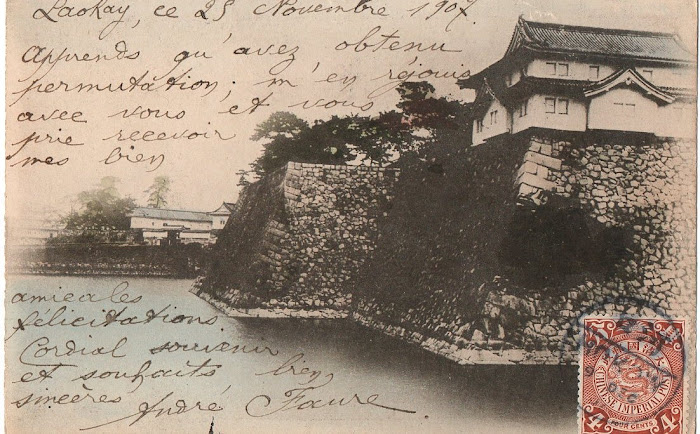 Laokay, ce 25 Novembre 1907.
Apprends qu'avez obtenu
permutation; m'en réjouis
avec vous et vous
prie recevoir
mes bien
amicales
félicitations
Cordial souvenir
et souhaits bien
sincères André Faure
CHINESE IMPERIAL POST
FOUR CENTS
4 4